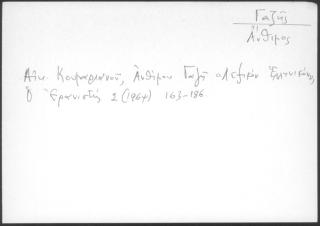 Γαζῆς
Ἄνθιμος
Αἰκ. Κουμαριανοῦ, Ἀνθίμου Γαζῆ
Ὁ Ἐρανιστής 2 (1964) 163-186.